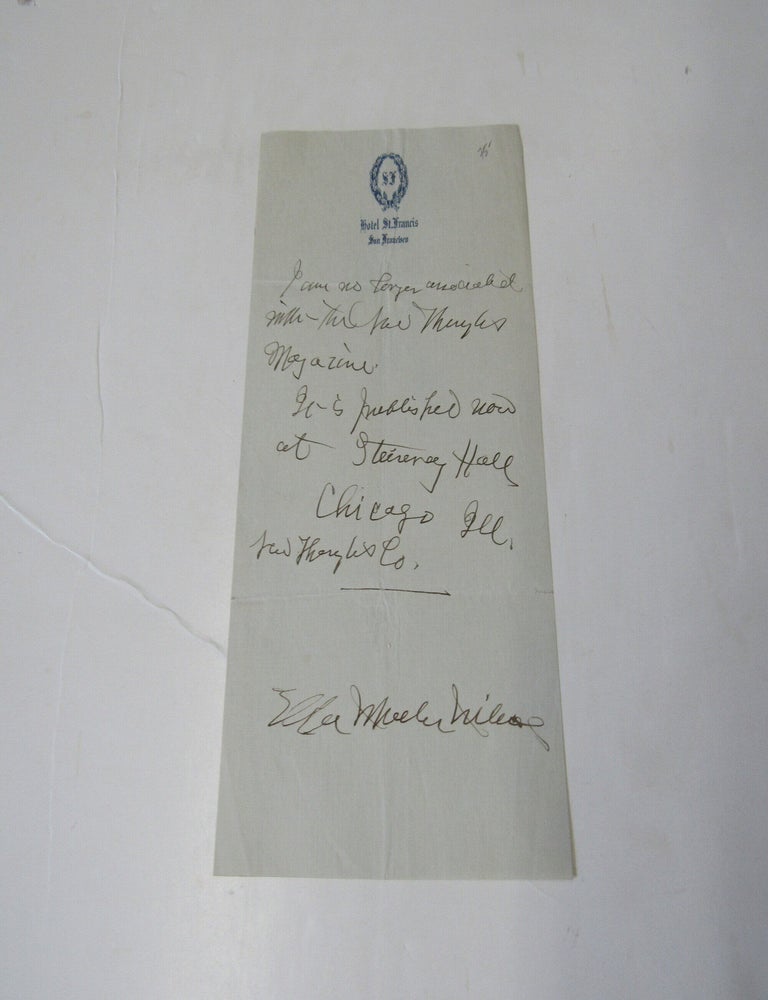 SF
Hotel St. Francis
San Francisco
I am no longer associated
with The New Thought
Magazine.
It is published now
at Steinway Hall
Chicago Ill.
New Thought Co.
Ella Wheeler Wilcox